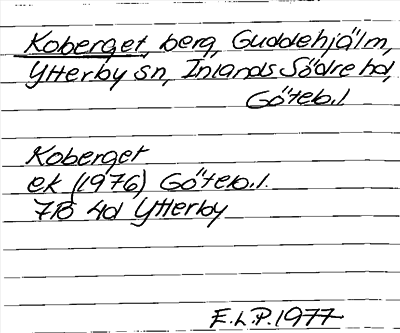 Koberget, berg, Guddehjälm,
Ytterby sn, Inlands Södre hd,
Göteb.l
Koberget
ek (1976) Göteb.l.
7B 4d Ytterby
E.L.P. 1977